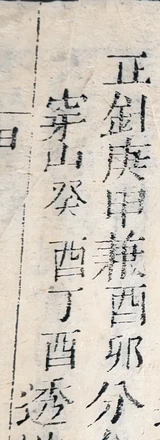 正針庚甲兼酉卯分
穿山癸酉丁酉透